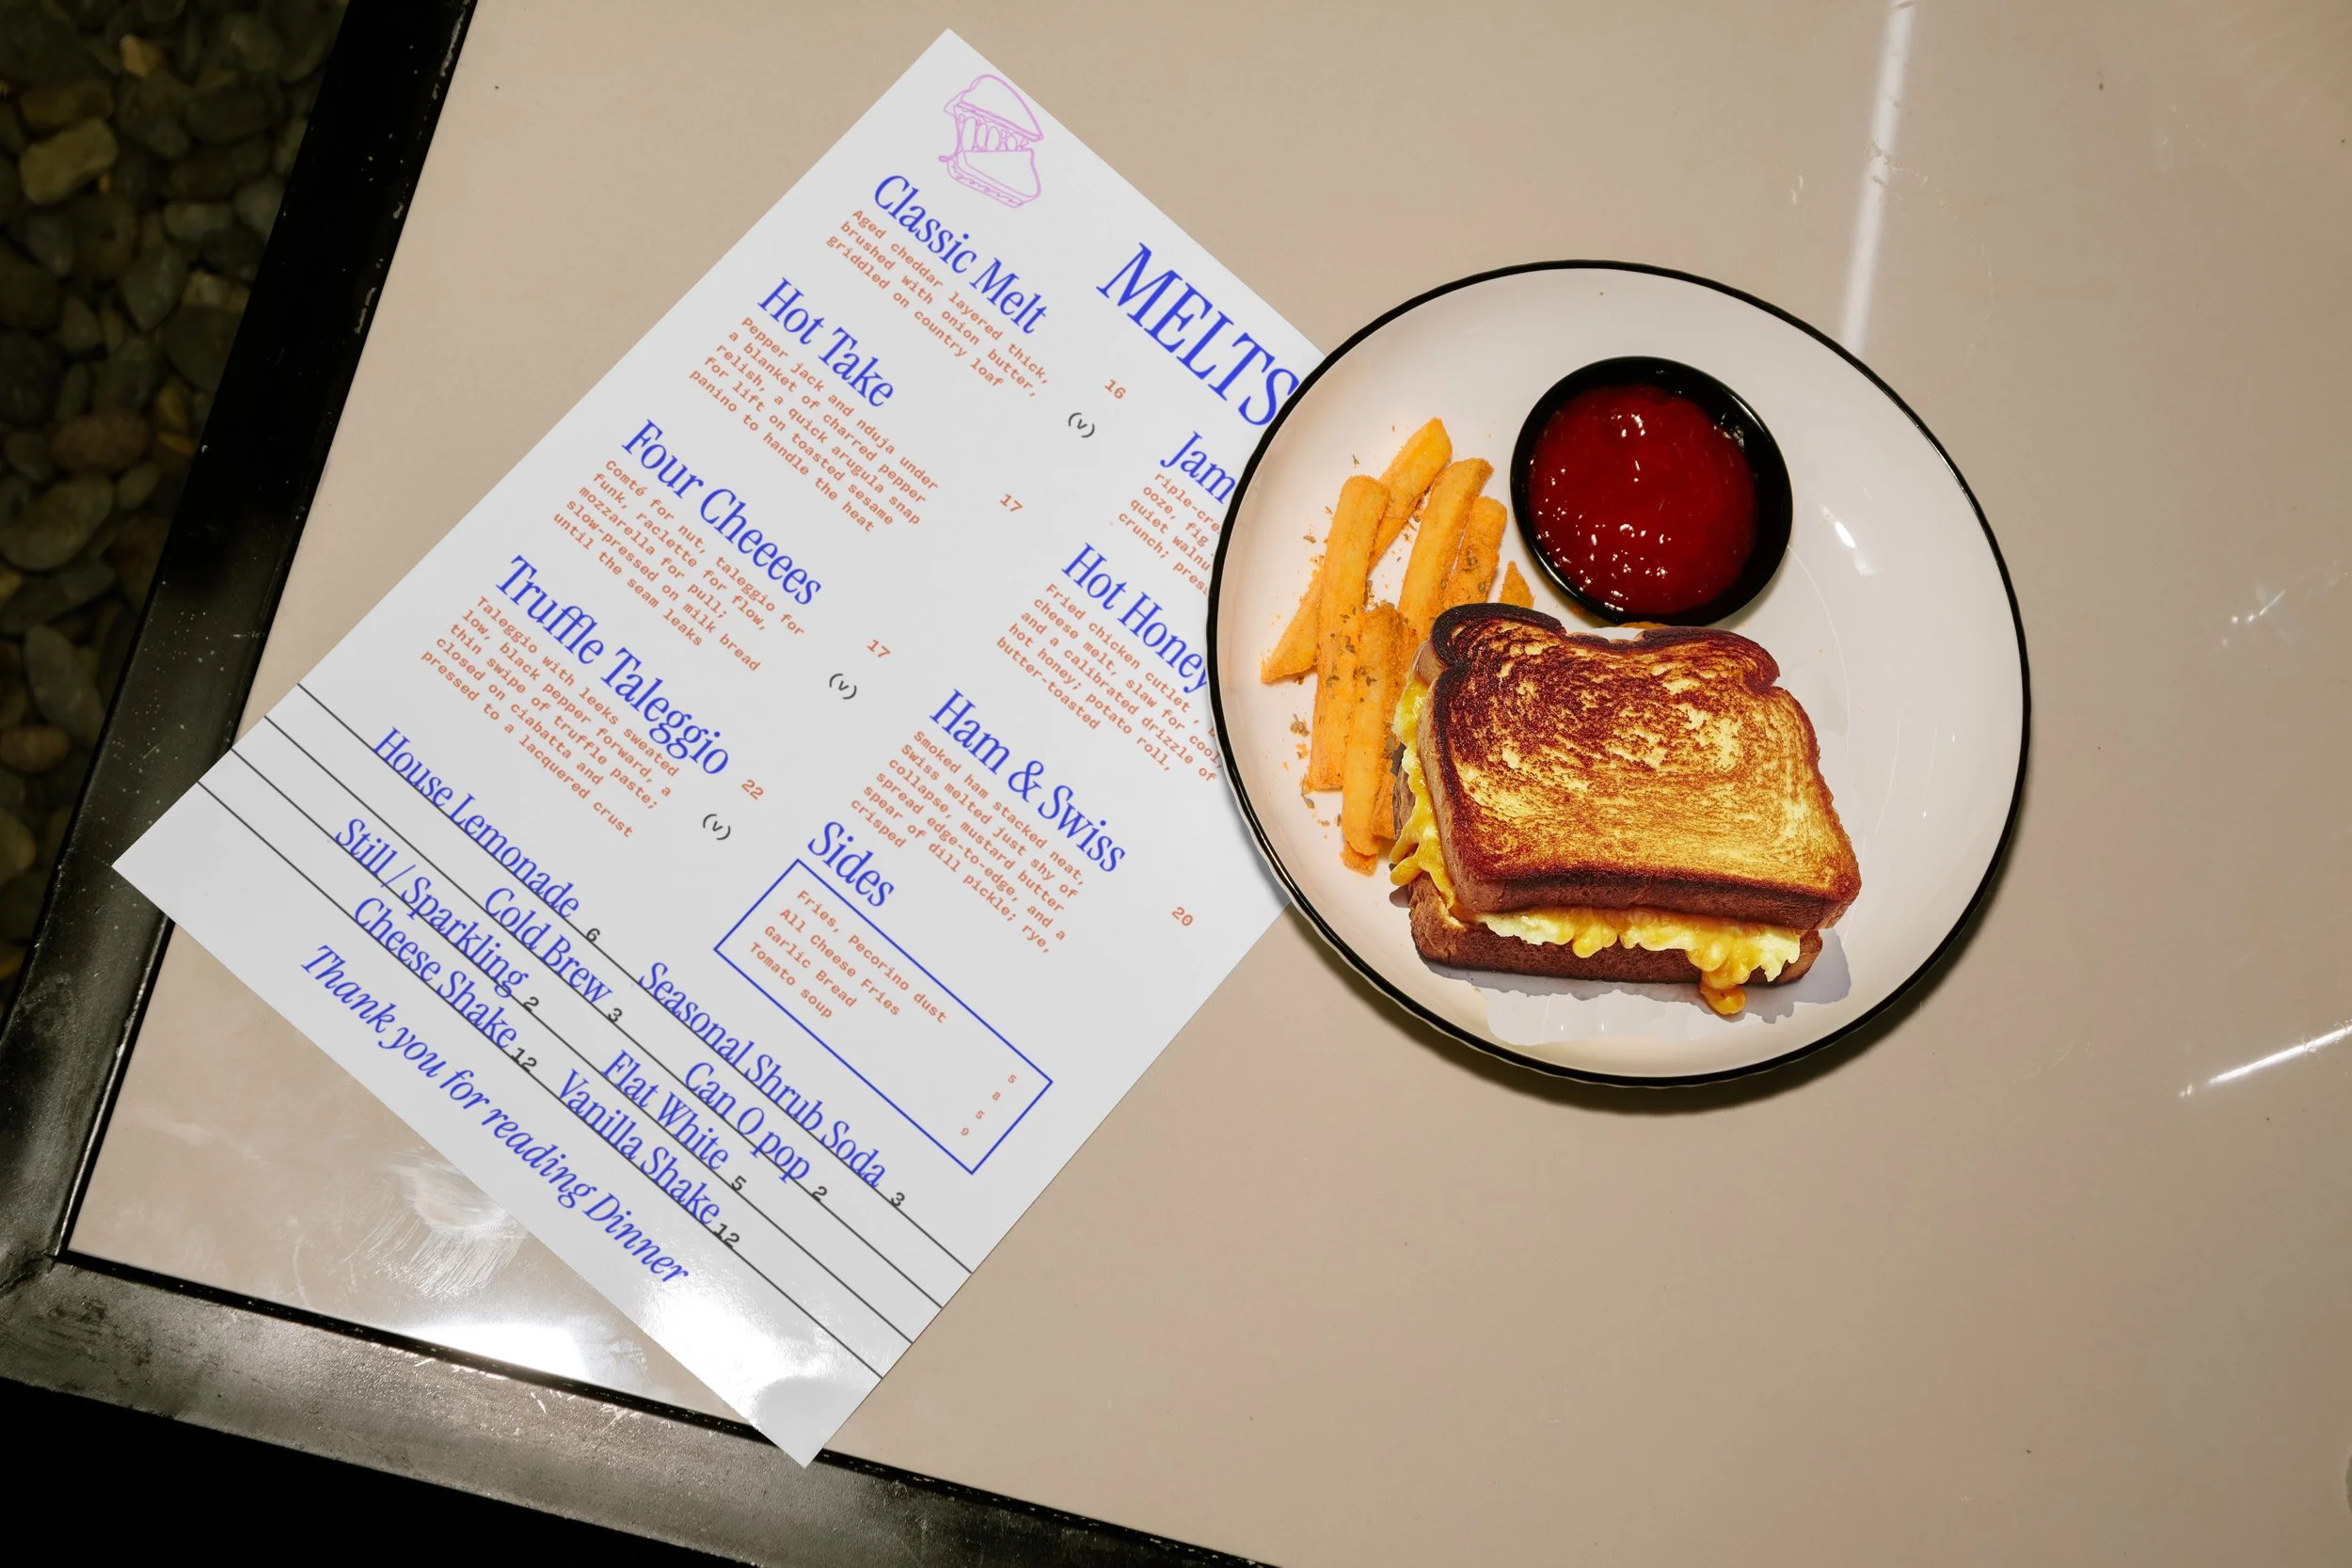 MELTS
Classic Melt
Aged cheddar layered thick,
brushed with onion butter,
griddled on country loaf
16
(v)
Hot Take
Pepper jack and nduja under
a blanket of charred pepper
relish, a quick arugula snap
for lift on toasted sesame
panino to handle the heat
17
Four Cheeees
Comté for nut, taleggio for
funk, raclette for flow,
mozzarella for pull;
slow-pressed on milk bread
until the seam leaks
17
(v)
Truffle Taleggio
Taleggio with leeks sweated
low, black pepper forward, a
thin swipe of truffle paste;
closed on ciabatta and
pressed to a lacquered crust
22
(v)
Jam
ooze, fig
quiet walnu
crunch; pres
Hot Honey
Fried chicken cutlet,
cheese melt, slaw for cool,
and a calibrated drizzle of
hot honey; potato roll,
butter-toasted
Ham & Swiss
Smoked ham stacked neat,
Swiss melted just shy of
collapse, mustard butter
spread edge-to-edge, and a
spear of dill pickle; rye,
crisped
20
Sides
Fries, Pecorino dust 5
All Cheese Fries 8
Garlic Bread 5
Tomato soup 9
House Lemonade 6 Seasonal Shrub Soda 3
Cold Brew 3 Can O pop 2
Still / Sparkling 2 Flat White 5
Cheese Shake 12 Vanilla Shake 12
Thank you for reading Dinner